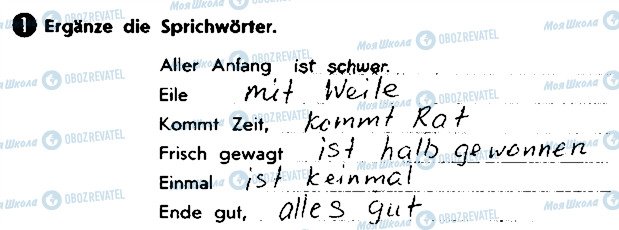 1 Ergänze die Sprichwörter.
Aller Anfang ist schwer.
Eile mit Weile
Kommt Zeit, kommt Rat
Frisch gewagt ist halb gewonnen
Einmal ist keinmal
Ende gut, alles gut
Моя Школа OBOZREVATEL